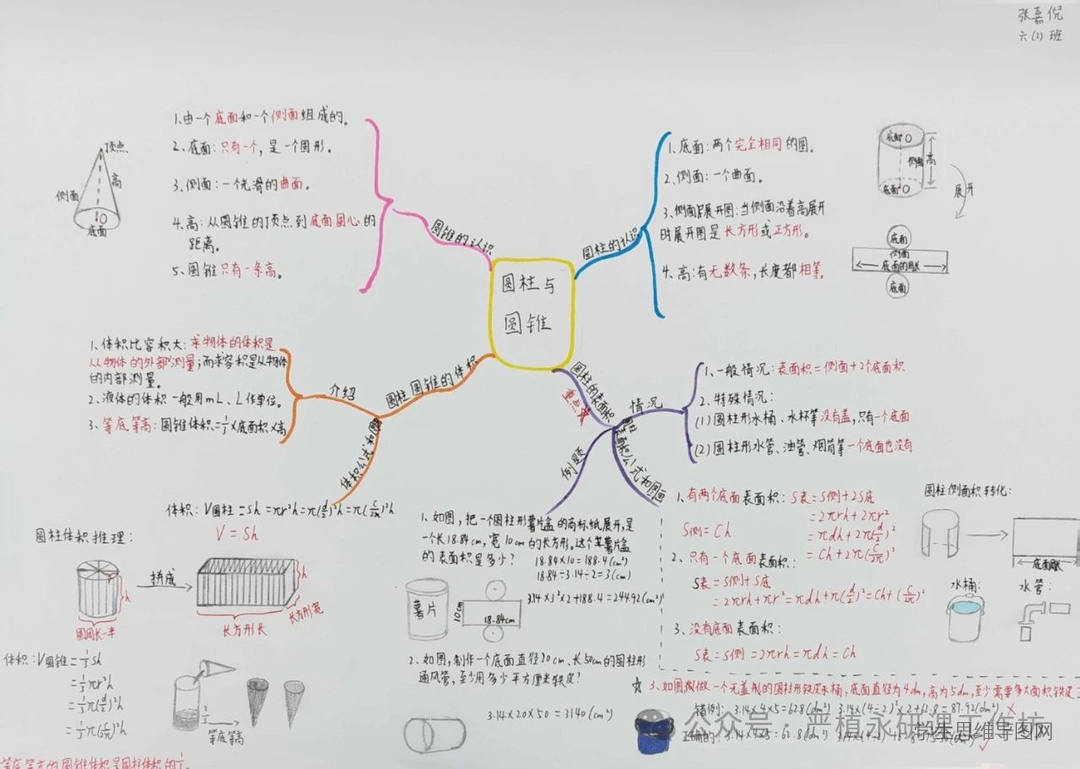 张嘉倪
六(2)班
1、由一个底面和一个侧面组成的。
2、底面:只有一个,是一个圆形。
3、侧面:一个光滑的曲面。
4、高:从圆锥的顶点到底面圆心的
距离。
5、圆锥只有一条高。
顶点
侧面
高
O
底面
圆锥的认识
圆柱与
圆锥
圆柱的认识
1、底面:两个完全相同的圆。
2、侧面:一个曲面。
3、侧面展开图:当侧面沿着高展开
时展开图是长方形或正方形。
4、高:有无数条,长度都相等。
底面 O
侧面
高
底面 O
展开
底面
侧面
底面的周长
底面
1、体积比容积大:求物体的体积是
从物体的外部测量;而求容积是从物体
的内部测量。
2、液体的体积一般用mL、L作单位。
3、等底等高:圆锥体积=1/3×底面积×高
介绍
圆柱 圆锥的体积
体积公式和图
体积:V圆柱=Sh=πr²h=π(d/2)²h=π(C/2π)²h
V=Sh
圆柱体积推理:
拼成
h
h
圆周长一半
长方形长
长方形宽
体积:V圆锥=1/3Sh
=1/3πr²h
=1/3π(d/2)²h
=1/3π(C/2π)²h
1/3
等底等高
圆柱的表面积
重点
情况
例题
表面积公式和图画
1、一般情况:表面积=侧面+2个底面积
2、特殊情况:
(1)圆柱形水桶、水杯等没有盖,只有一个底面
(2)圆柱形水管、油管、烟筒等一个底面也没有
1、如图,把一个圆柱形薯片盒的商标纸展开,是
一个长18.84cm,宽10cm的长方形。这个薯片盒
的表面积是多少?
18.84×10=188.4(cm²)
18.84÷3.14÷2=3(cm)
3.14×3²×2+188.4=244.92(cm²)
薯片
10cm
18.84cm
2、如图,制作一个底面直径20cm、长50cm的圆柱形
通风管,至少用多少平方厘米铁皮?
3.14×20×50=3140(cm²)
1、有两个底面表面积:S表=S侧+2S底
=2πrh+2πr²
S侧=Ch
=πdh+2π(d/2)²
=Ch+2π(C/2π)²
2、只有一个底面表面积:
S表=S侧+S底
=2πrh+πr²=πdh+π(d/2)²=Ch+(C/2π)²
3、没有底面表面积:
S表=S侧=2πrh=πdh=Ch
圆柱侧面积转化:
底面周长
水桶:
水管:
3、如图做一个无盖的圆柱形铁皮水桶,底面直径为4dm,高为5dm,至少需要多大面积铁皮
错例:3.14×4×5=62.8(dm²) 3.14×(4÷2)²×2+62.8=87.92(dm²) ×
正确的:3.14×4×5=62.8(dm²)
公众号·严植永研课工作坊
学生思维导图网